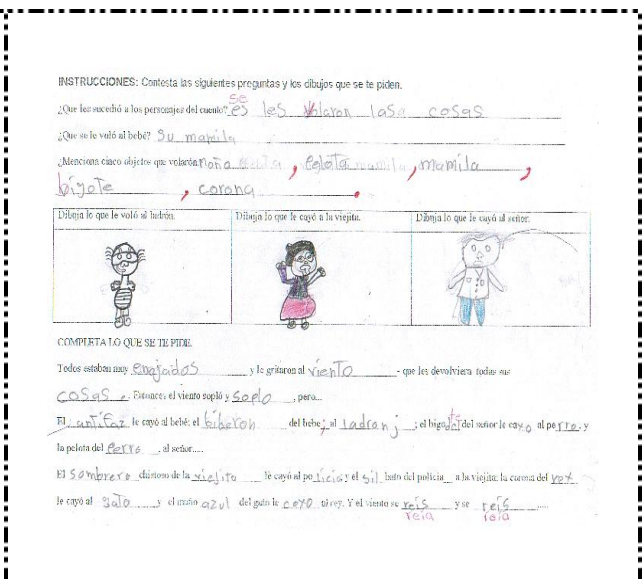 INSTRUCCIONES: Contesta las siguientes preguntas y los dibujos que se te piden.
se
¿Que les sucedió a los personajes del cuento? es les volaron lasa cosas
¿Que se le voló al bebé? Su mamila
¿Menciona cinco objetos que volarón moña, , mamila,
bigote, corona.
Dibuja lo que le voló al ladrón. Dibuja lo que le cayó a la viejita. Dibuja lo que le cayó al señor.
COMPLETA LO QUE SE TE PIDE.
Todos estaban muy enojados y le gritaron al viento - que les devolviera todas sus
cosas. Entonces el viento sopló y soplo, pero...
El antifaz le cayó al bebé; el biberon del bebe; al ladron; el bigote del señor le cayo al perro, y
la pelota del perro, al señor....
El sombrero chistoso de la viejito le cayó al policia y el sil bato del policía a la viejita; la corona del rey
le cayó al gato y el moño azul del gato le coyo al rey. Y el viento se reis y se reis .....
reia reia